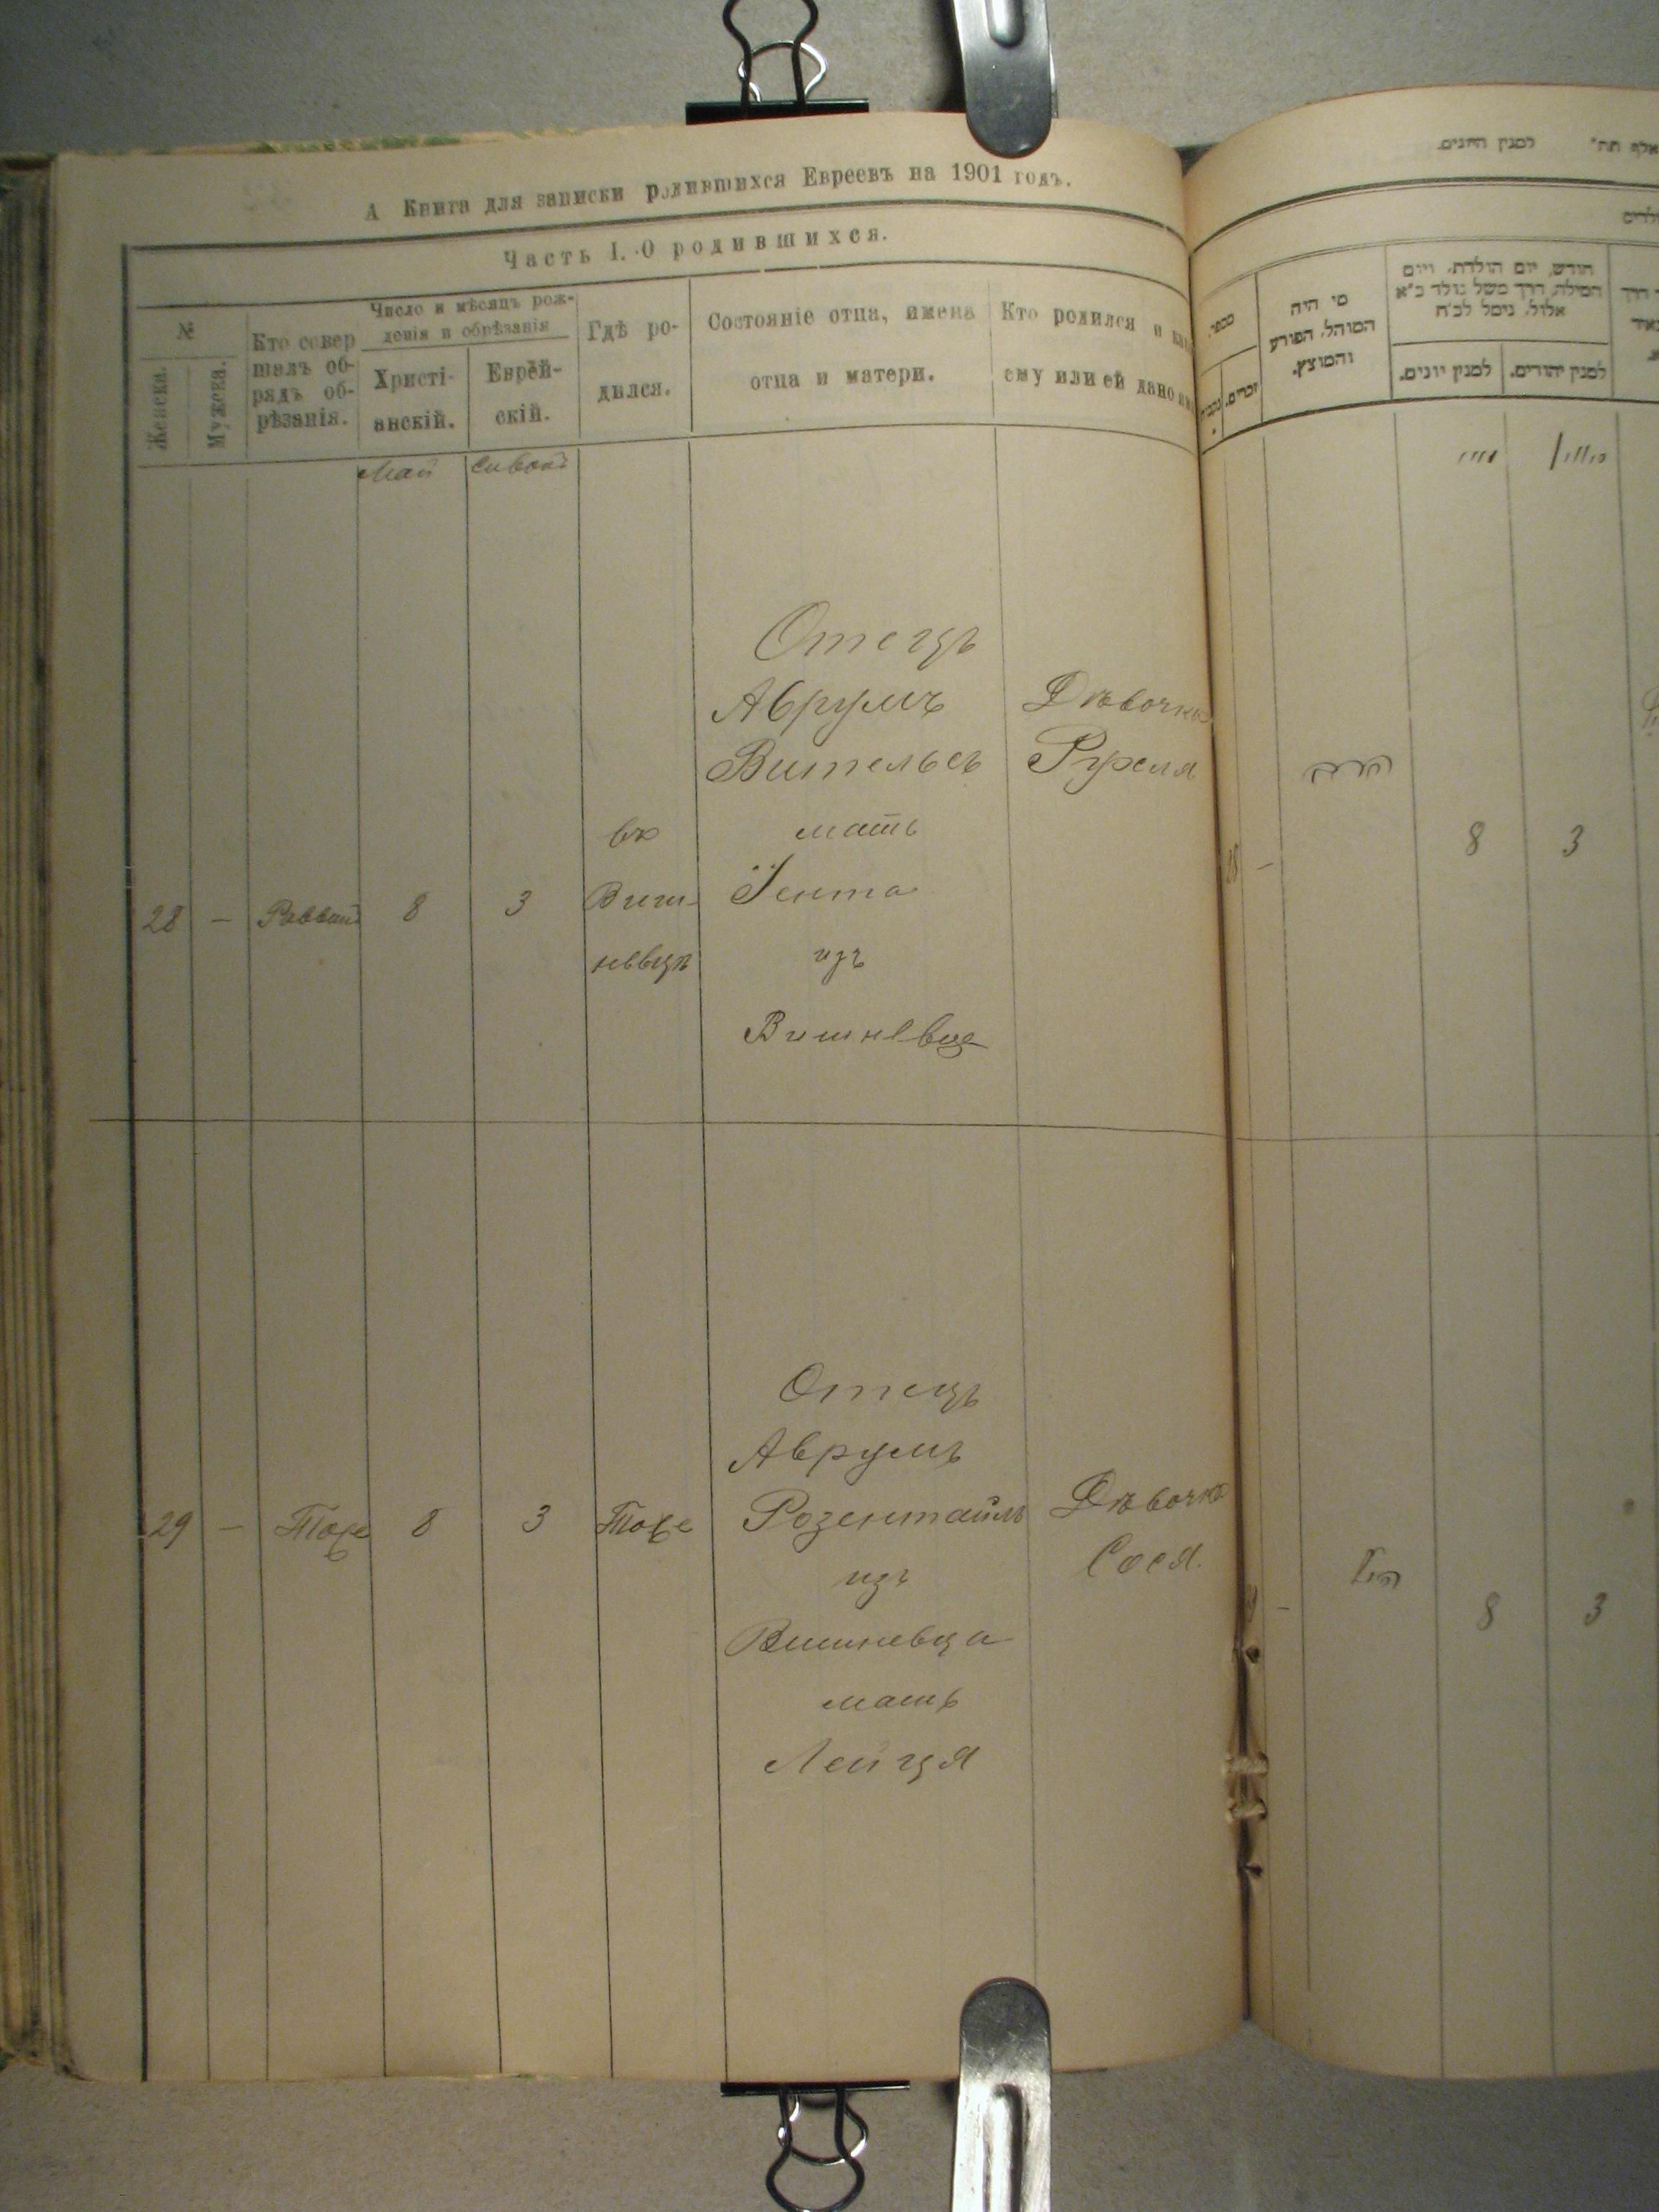 А Книга для записки родившихся Евреевъ на 1901 годъ.
Часть I. О родившихся.
№
Женска.
Мужеска.
Кто совер
шалъ об-
рядъ об-
рѣзанія.
Число и мѣсяцъ рож-
денія и обрѣзанія
Христі-
анскій.
Еврей-
скій.
Гдѣ ро-
дился.
Состояніе отца, имена
отца и матери.
Кто родился и
ему или ей дано
Май
Сивонъ
28
—
Раввинъ
8
3
въ
Виш-
невцѣ
Отецъ
Аврумъ
Вительсъ
мать
Іента
изъ
Вишневца
Дѣвочка
Рухля
29
—
Тоже
8
3
Тоже
Отецъ
Аврумъ
Розентайлъ
изъ
Вишневца
мать
Лейця
Дѣвочка
Сося.
למנין היונים.
מספר
זכרים.
מי היה
המוהל, הפורע
והמוצץ.
חודש, יום הולדת, ויום
המילה, דרך משל נולד כ"א
אלול, נימל לכ"ח
למנין יונים.
למנין יהודים.
28
—
הרב
8
3
—
8
3